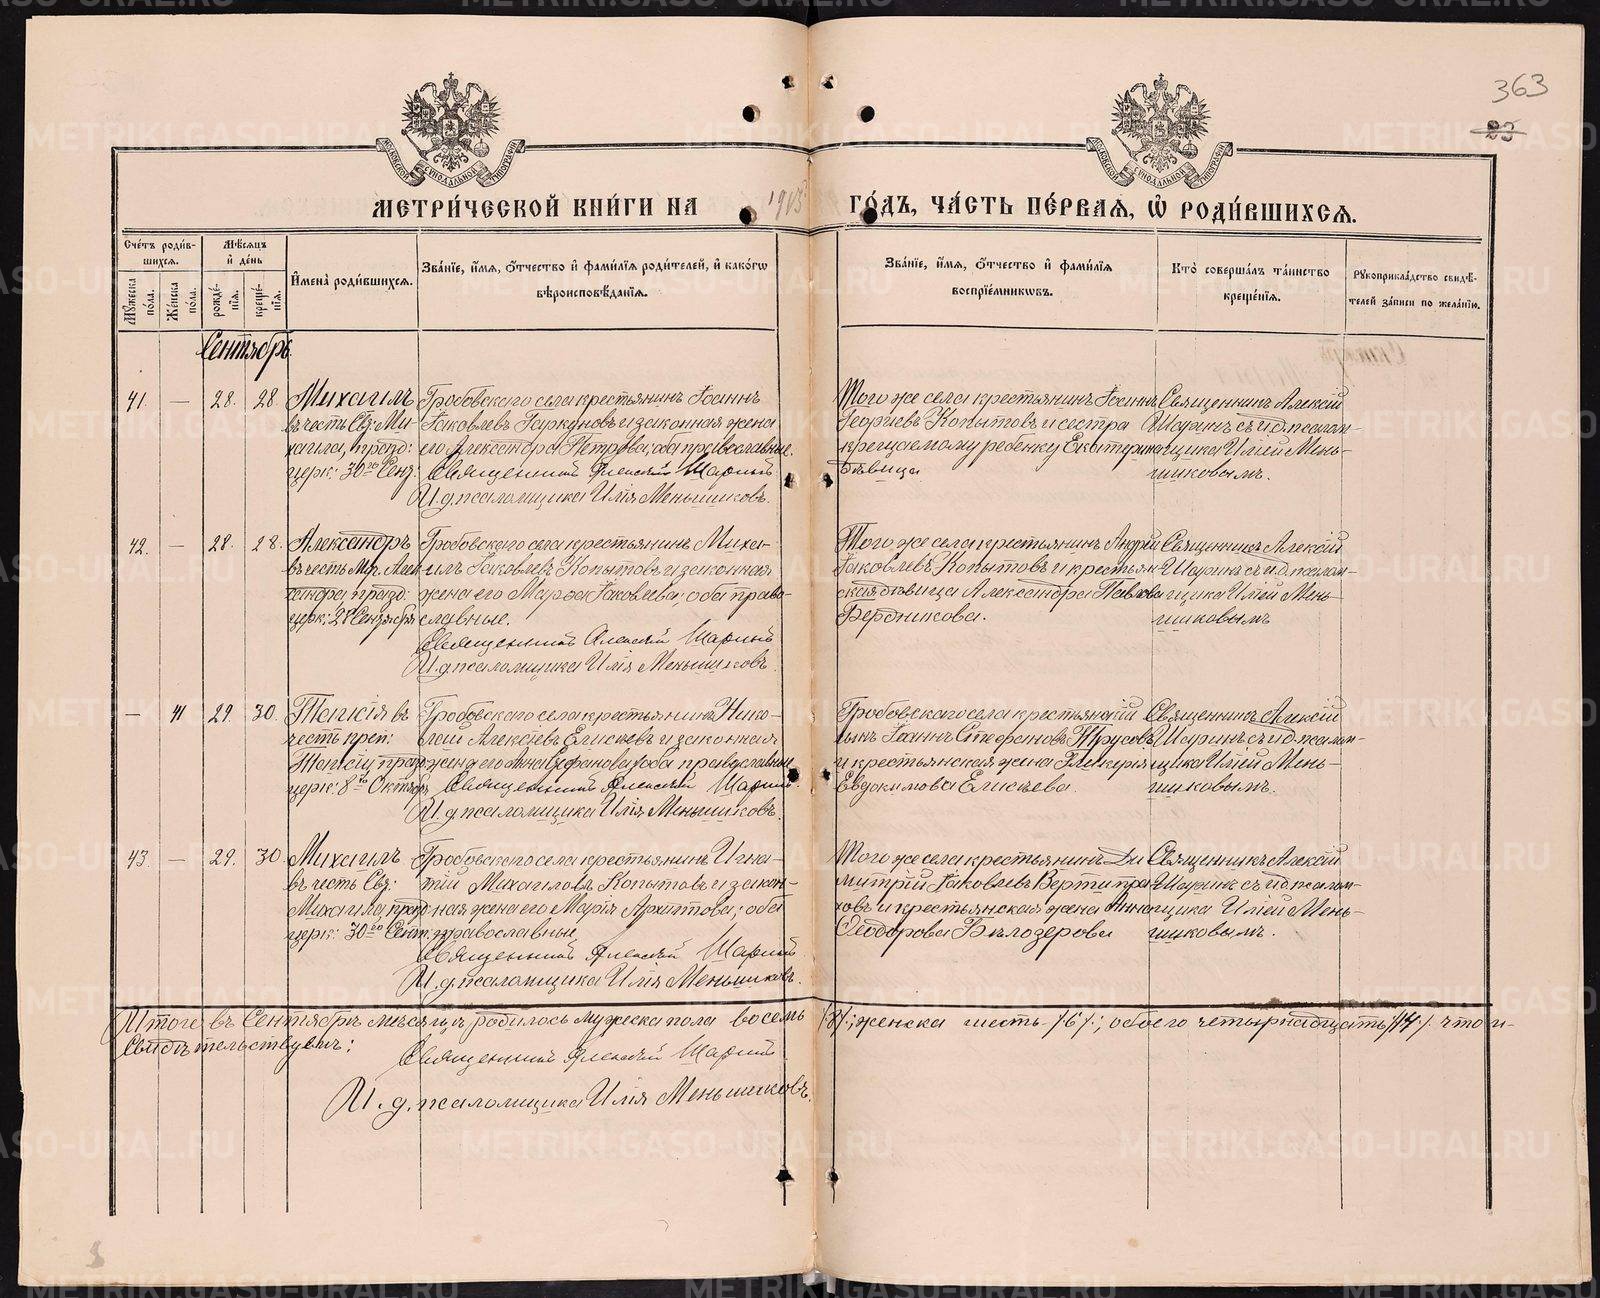 363
23
МОСКОВСКОЙ СѴНОДАЛЬНОЙ ТИПОГРАФІИ
МОСКОВСКОЙ СѴНОДАЛЬНОЙ ТИПОГРАФІИ
МЕТРИ́ЧЕСКОЙ КНИ́ГИ НА 1913 ГО́ДЪ, ЧА́СТЬ ПЕ́РВАѦ, Ѽ РОДИ́ВШИХСѦ.
Сче́тъ роди́в-
шихсѧ.
Мꙋ́жеска по́ла.
Же́нска по́ла.
Мѣ́сѧцъ
и҆ де́нь
рожде́-
нїѧ.
креще́-
нїѧ.
И҆мена̀ роди́вшихсѧ.
Зва́нїе, и҆́мѧ, ѻ҆́тчество и҆ фами́лїѧ роди́телей, и҆ како́гѡ
вѣроисповѣ́данїѧ.
Зва́нїе, и҆́мѧ, ѻ҆́тчество и҆ фами́лїѧ
воспрїе́мникѡвъ.
Кто̀ соверша́лъ та́инство
креще́нїѧ.
Рꙋкоприкла́дство свидѣ́-
телей за́писи по жела́нїю.
Сентябрь
41. — 28. 28
Михаилъ
въ честь Св: Ми-
хаила, празд:
церк: 30го Сент:
Гробовскаго села крестьянинъ Іоаннъ
Іаковлевъ Гаркуновъ и законная жена
его Александра Петрова, оба православные.
Священникъ Алексій Шаринъ
И. д. псаломщика Илія Меньшиковъ.
Того же села крестьянинъ Іоаннъ
Георгіевъ Копытовъ и сестра
крещаемому ребенку Екатерина
дѣвица
Священникъ Алексій
Шаринъ съ и. д. псалом-
щика Иліей Мень-
шиковымъ.
42. — 28. 28.
Александръ
въ честь Муч. Алек-
сандра, празд:
церк: 28 Сентября
Гробовскаго села крестьянинъ Миха-
илъ Іаковлевъ Копытовъ и законная
жена его Марѳа Іаковлева; оба право-
славные.
Священникъ Алексій Шаринъ
И. д. псаломщика Илія Меньшиковъ.
Того же села крестьянинъ Андрей
Іаковлевъ Копытовъ и крестьян-
ская дѣвица Александра Павлова
Бердникова.
Священникъ Алексій
Шаринъ съ и. д. псалом-
щика Иліей Мень-
шиковымъ
— 41 29. 30.
Таисія въ
честь преп:
Таисіи празд:
церк: 8го Октября
Гробовскаго села крестьянинъ Нико-
лай Алексѣевъ Елисѣевъ и законная
жена его Анна Стефанова; оба православные
Священникъ Алексій Шаринъ.
И. д. псаломщика Илія Меньшиковъ.
Гробовскаго села крестьянскій
сынъ Іоаннъ Стефановъ Трусовъ
и крестьянская жена Гликерія
Евдокимова Елисѣева.
Священникъ Алексій
Шаринъ съ и. д. псалом-
щика Иліей Мень-
шиковымъ.
43. — 29. 30
Михаилъ
въ честь Св:
Михаила, празд
церк: 30го Сент.
Гробовскаго села крестьянинъ Игна-
тій Михаиловъ Копытовъ и закон-
ная жена его Марія Архиппова; оба
православные
Священникъ Алексій Шаринъ.
И. д. псаломщика Илія Меньшиковъ.
Того же села крестьянинъ Ди-
митрій Іаковлевъ Вертипра-
ховъ и крестьянская жена Анна
Ѳеодорова Бѣлозерова
Священникъ Алексій
Шаринъ съ и. д. псалом-
щика Иліей Мень-
шиковымъ.
Итого въ Сентябрѣ мѣсяцѣ родилось мужеска пола восемь /8/.; женска шесть /6/.; обоего четырнадцать /14/. что и
свидѣтельствуемъ:
Священникъ Алексій Шаринъ
И. д. псаломщика Илія Меньшиковъ.
METRIKI.GASO-URAL.RU